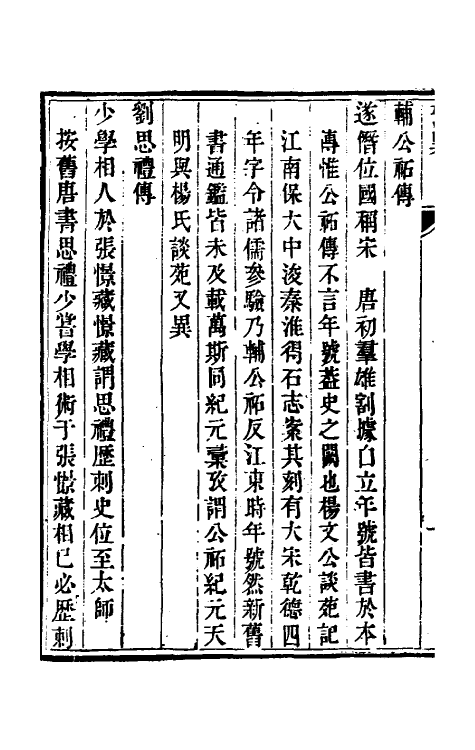 輔公祏傳
遂僭位國稱宋　唐初羣雄割據自立年號皆書於本
傳惟公祏傳不言年號蓋史之闕也楊文公談苑記
江南保大中浚秦淮得石志案其刻有大宋乾德四
年字令諸儒參驗乃輔公祏反江東時年號然新舊
書通鑑皆未及載萬斯同紀元彙攷謂公祏紀元天
明與楊氏談苑又異
劉思禮傳
少學相人於張憬藏憬藏謂思禮歷刺史位至太師
按舊唐書思禮少嘗學相術于張憬藏相己必歷刺